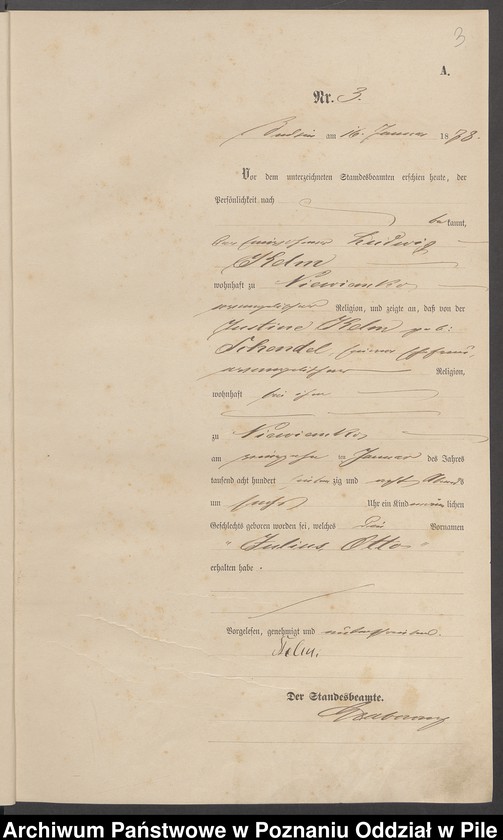 3
A.
Nr. 3.
Budsin am 16. Januar 1878.
Vor dem unterzeichneten Standesbeamten erschien heute, der
Persönlichkeit nach
bekannt,
der Ludwig
Kelm
wohnhaft zu Niewiemko
evangelischer Religion, und zeigte an, daß von der
Justine Kelm geb:
Schendel, seiner Ehefrau
evangelischer Religion,
wohnhaft bei ihm
zu Niewiemko
am Januar des Jahres
tausend acht hundert siebenzig und acht
um sechs Uhr ein Kind männlichen
Geschlechts geboren worden sei, welches die Vornamen
"Julius Otto"
erhalten habe.
Vorgelesen, genehmigt und unterschrieben.
Kelm.
Der Standesbeamte.
Archiwum Państwowe w Poznaniu Oddział w Pile